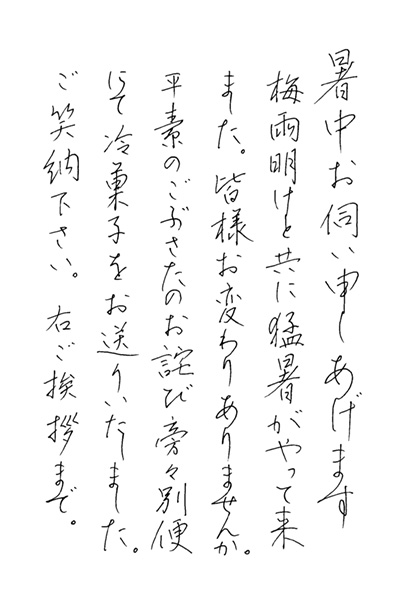 暑中お伺い申しあげます
梅雨明けと共に猛暑がやって来
ました。皆様お変わりありませんか。
平素のごぶさたのお詫び旁々別便
にて冷菓子をお送りいたしました。
ご笑納下さい。右ご挨拶まで。